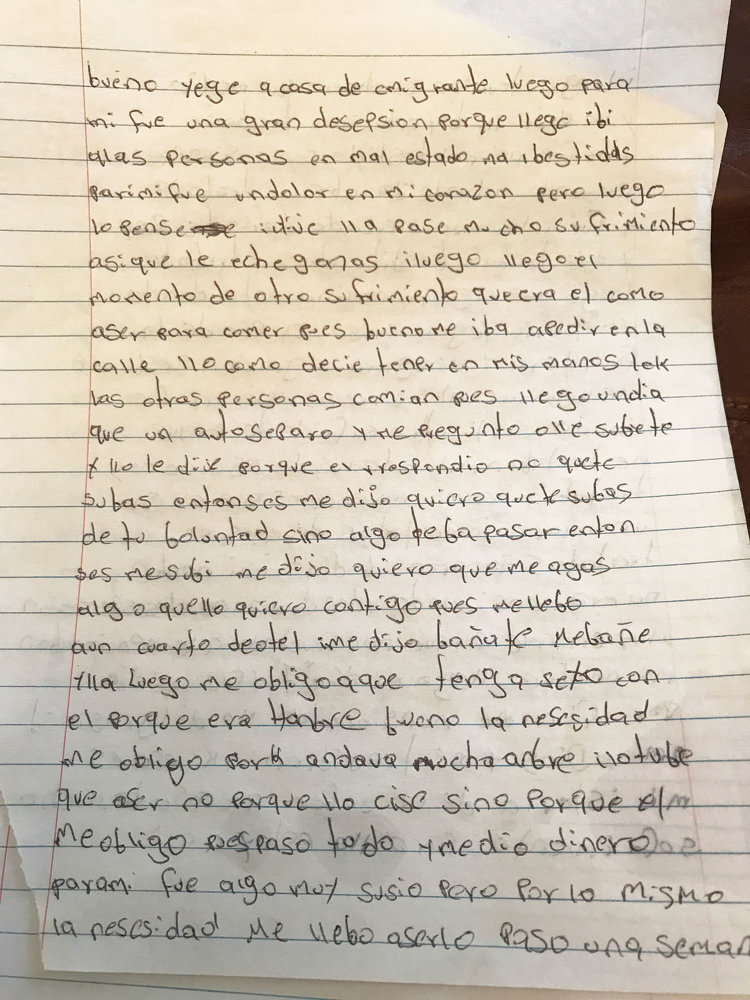 bueno yege a casa de emigrante luego para
mi fue una gran desepsion porque llege ibi
alas personas en mal estado mal bestidas
parimi fue undolor en mi corazon pero luego
lo pense idije lla pase mucho sufrimiento
asique le eche ganas iluego llego el
momento de otro sufrimiento quecra el como
aser para comer pues bueno me iba apedir en la
calle llo como decie tener en mis manos lok
las otras personas comian pues llego undia
que un auto separo y me pregunto olle subete
y llo le dije porque el rrespondio no quete
subas entonses me dijo quiero que te subas
de tu boluntad sino algo te ba pasar enton
ses me subi me dijo quiero que me agas
algo quello quiero contigo pues mellebo
aun cuarto deotel ime dijo bañate mebañe
illa luego me obligo aque tenga sexo con
el porque era Hanbre bueno la nesesidad
me obligo pork andava mucha anbre illotube
que aser no porque llo cise sino porque el
me obligo pues paso todo y medio dinero
parami fue algo muy susio pero por lo mismo
la nesesidad me llebo aserlo paso una seman